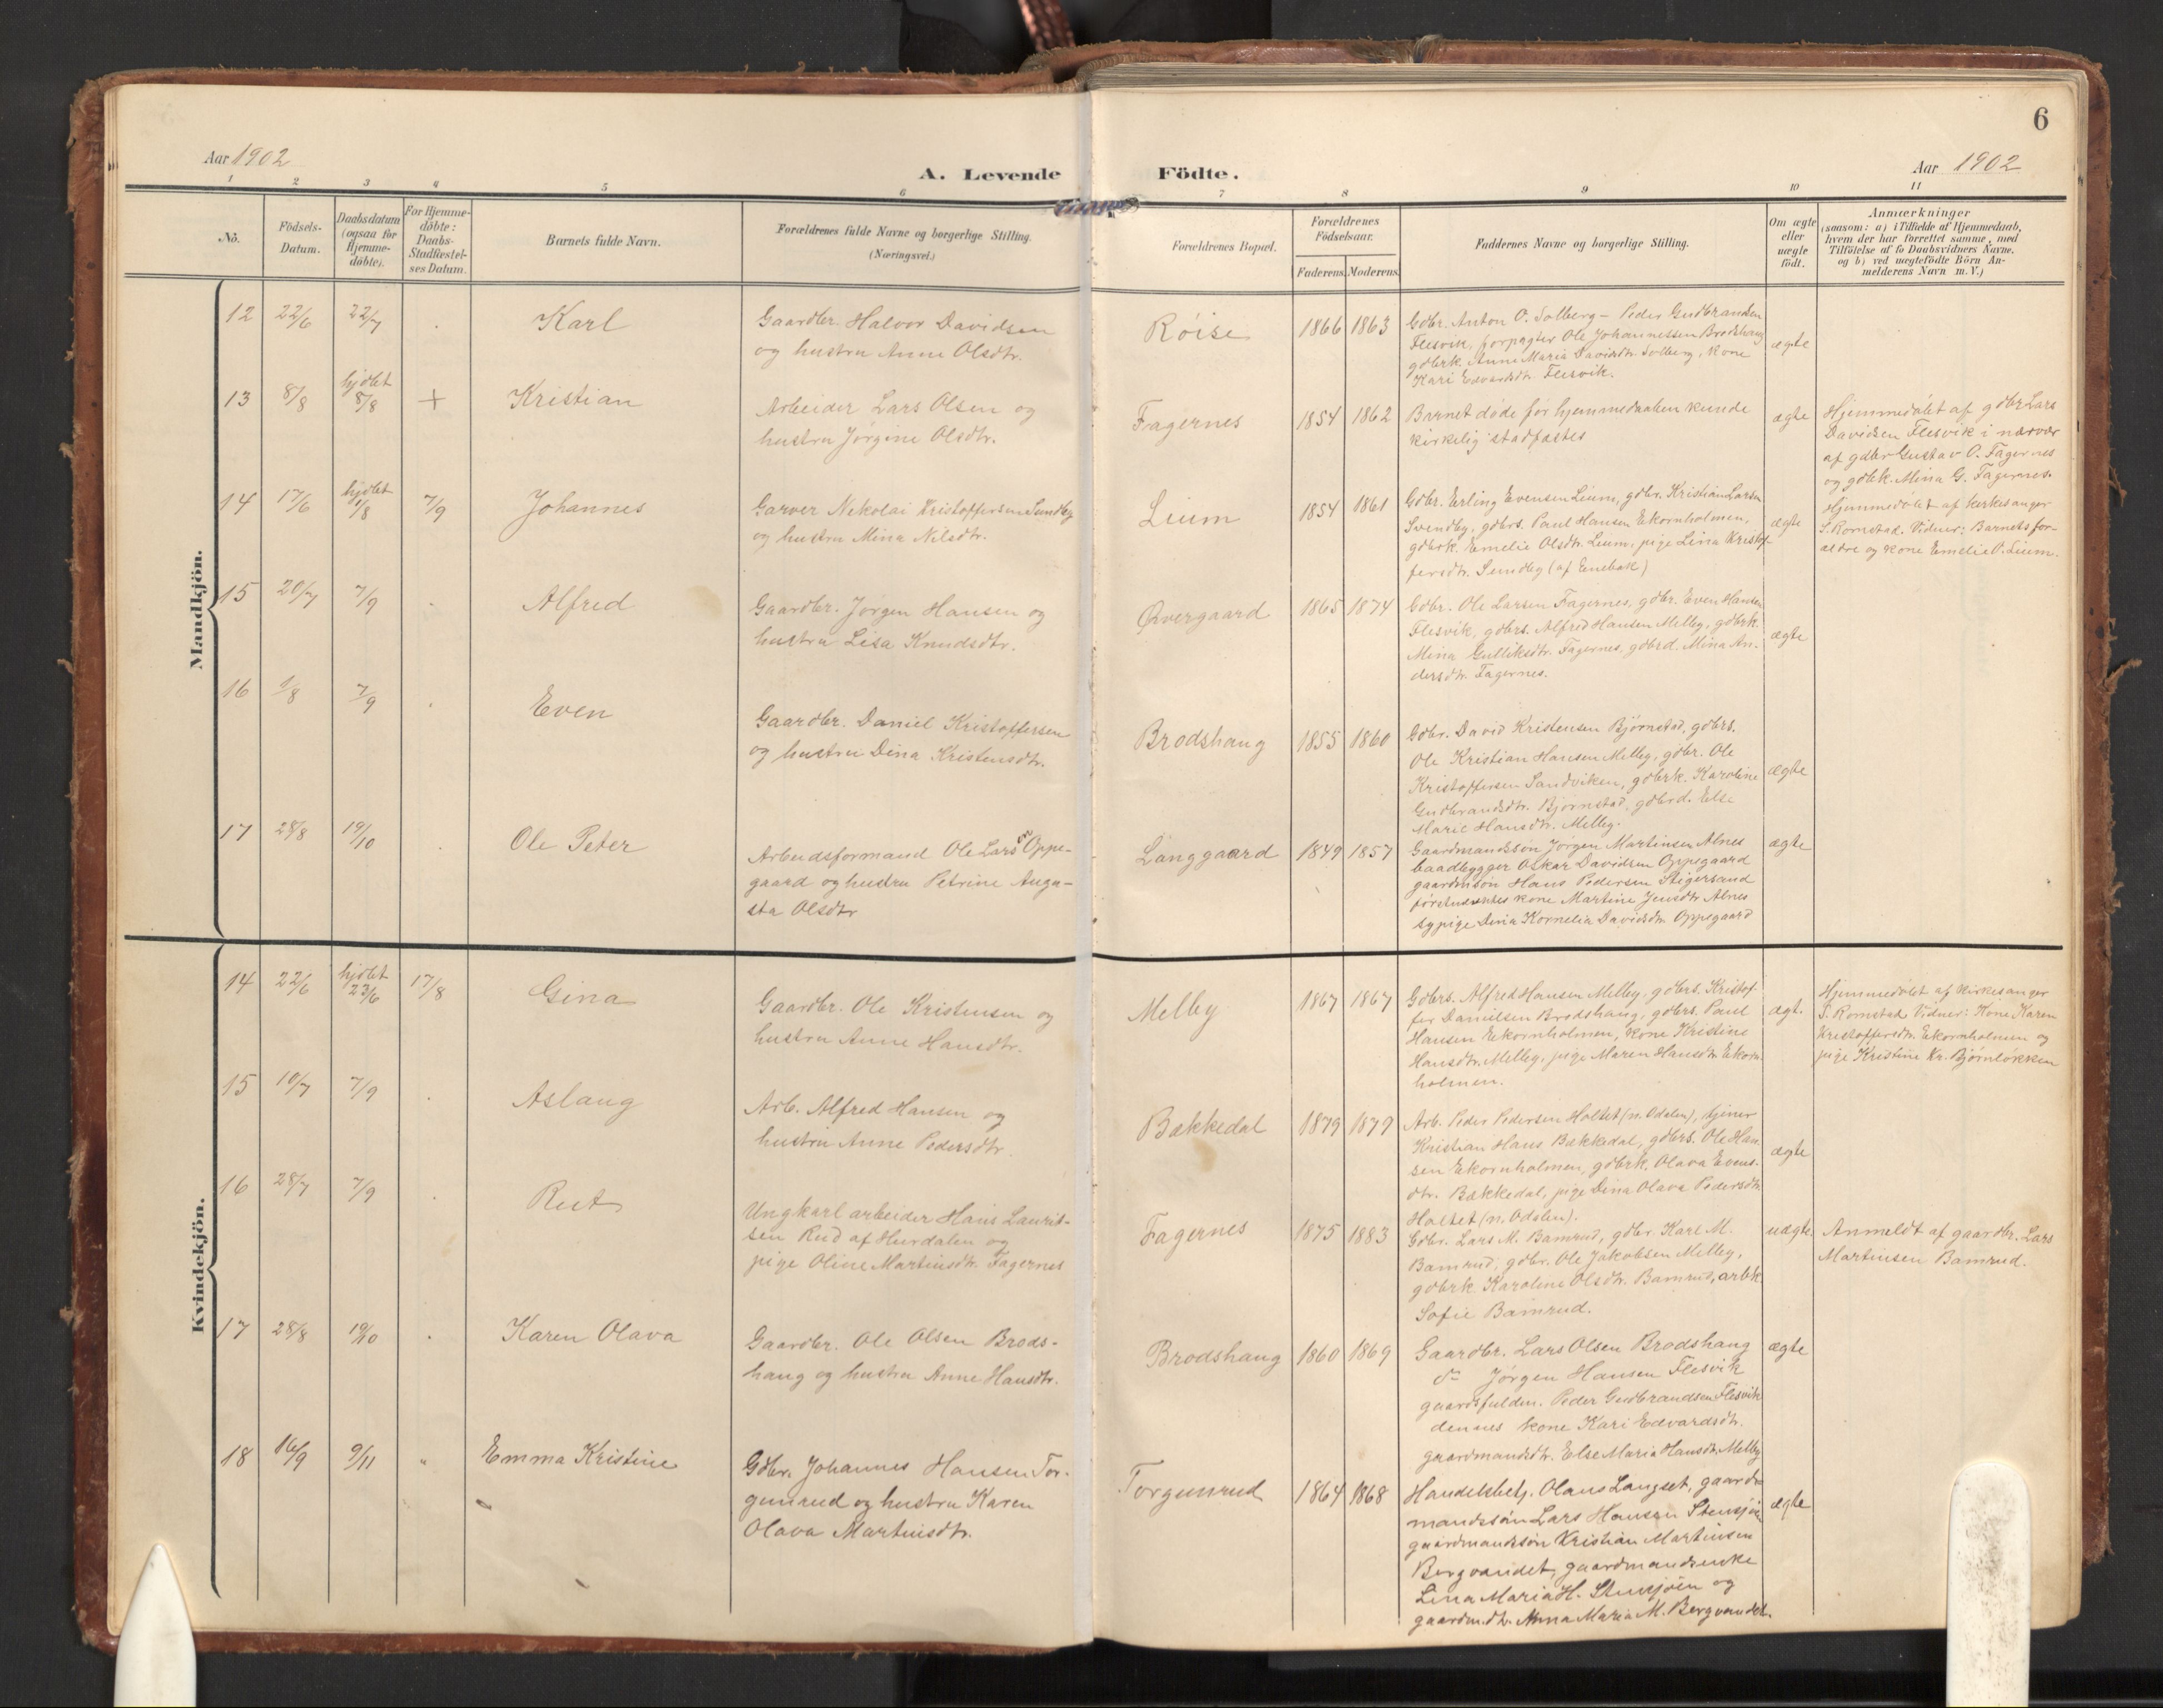 6
Aar 1902
A. Levende Födte.
Aar 1902
1 2 3 4 5 6 7 8 9 10 11
No.
Födsels-Datum.
Daabsdatum (ogsaa for Hjemmedöbte).
For Hjemmedöbte: Daabs-Stadfæstelses Datum.
Barnets fulde Navn.
Forældrenes fulde Navne og borgerlige Stilling.
(Næringsvei.)
Forældrenes Bopæl.
Forældrenes Födselsaar.
Faderens. Moderens.
Faddernes Navne og borgerlige Stilling.
Om ægte eller uægte födt.
Anmærkninger
(saasom: a) i Tilfælde af Hjemmedaab, hvem der har forrettet samme, med Tilföielse af to Daabsvidners Navne, og b) ved uægtefödte Börn Anmelderens Navn m. V.)
Mandkjön.
12 22/6 22/7 Karl
Gaardbr. Halvor Davidsen
og hustru Anne Olsdtr.
Røise 1866 1863
Gdbr. Anton O. Solberg – Peder Gudbrandsen
Flesvik, forpagter Ole Johannessen Brodshaug
gdbrk. Anne Maria Davidsdtr. Solberg, kone
Kari Edvardsdtr. Flesvik.
ægte
13 8/8 hjdbt 8/8 + Kristian
Arbeider Lars Olsen og
hustru Jørgine Olsdtr.
Fagernes 1854 1862
Barnet døde før hjemmedaaben kunde
kirkelig stadfæstes
ægte
Hjemmedøbt af gdbr Lars
Davidsen Flesvik i nærvær
af gdbr Gustav O. Fagernes
og gdbk. Mina G. Fagernes.
14 17/6 hjdbt 1/8 7/9 Johannes
Garver Nikolai Kristoffersen Sundby
og hustru Mina Nilsdtr.
Lium 1854 1861
Gdbr. Erling Evensen Lium, gdbr. Kristian Larsen
Svendby, gdbrs. Paul Hansen Ekornholmen,
gdbrk. Emelie Olsdtr. Lium, pige Lina Kristof-
fersdtr. Sundby (af Enebak)
ægte
Hjemmedøbt af kirkesanger
S. Romstad. Vidner: Barnets for-
ældre og kone Emelie O. Lium.
15 20/7 7/9 Alfred
Gaardbr. Jørgen Hansen og
hustru Lisa Knudsdtr.
Øvergaard 1865 1874
Gdbr. Ole Larsen Fagernes, gdbr. Even Hansen
Flesvik, gdbrs. Alfred Hansen Melby, gdbrk.
Mina Gulliksdtr. Fagernes, gdbrd. Mina An-
dersdtr. Fagernes.
ægte
16 1/8 7/9 Even
Gaardbr. Daniel Kristoffersen
og hustru Dina Kristensdtr.
Brodshaug 1855 1860
Gdbr. David Kristensen Bjørnstad, gdbrs.
Ole Kristian Hansen Melby, gdbr. Ole
Kristoffersen Sandviken, gdbrk. Karoline
Gudbrandsdtr. Bjørnstad, gdbrd. Else
Marie Hansdtr. Melby.
ægte
17 28/8 19/10 Ole Peter
Arbeidsformand Ole Larsen Oppe-
gaard og hustru Petrine Augu-
sta Olsdtr
Langgaard 1849 1857
Gaardmandssøn Jørgen Martinsen Alnes
baadbygger Oskar Davidsen Oppegaard
gaardmsøn Hans Pedersen Stigersand
førstnævntes kone Martine Jensdtr Alnes
sypige Dina Kornelia Davidsdtr. Oppegaard
ægte
Kvindekjön.
14 22/6 hjdbt 23/6 17/8 Gina
Gaardbr. Ole Kristensen og
hustru Anne Hansdtr.
Melby 1867 1867
Gdbrs. Alfred Hansen Melby, gdbrs. Kristof-
fer Danielsen Brodshaug, gdbrs. Paul
Hansen Ekornholmen, kone Kristine
Hansdtr. Melby, pige Maren Hansdtr. Ekorn-
holmen.
ægt.
Hjemmedøbt af kirkesanger
S. Romstad Vidner: Kone Karen
Kristoffersdtr. Ekornholmen og
pige Kristine Kr. Bjørnløkken
15 10/7 7/9 Aslaug
Arb. Alfred Hansen og
hustru Anne Pedersdtr.
Bækkedal 1879 1879
Arb. Peder Pedersen Holtet (n. Odalen), tjener
Kristian Hans Bækkedal, gdbrs. Ole Han-
sen Ekornholmen, gdbrk. Olava Evens-
dtr. Bækkedal, pige Dina Olava Pedersdtr.
Holtet (n. Odalen).
ægte
16 28/7 7/9 Rut
Ungkarl arbeider Hans Laurit-
sen Rud af Hurdalen og
pige Oline Martinsdtr. Fagernes
Fagernes 1875 1883
Gdbr. Lars M. Bamrud, gdbr. Karl M.
Bamrud, gdbr. Ole Jakobsen Melby,
gdbrk. Karoline Olsdtr. Bamrud, arbk.
Sofie Bamrud.
uægte.
Anmeldt af gaardbr. Lars
Martinsen Bamrud.
17 28/8 19/10 Karen Olava
Gaardbr. Ole Olsen Brods-
haug og hustru Anne Hansdtr.
Brodshaug 1860 1869
Gaardbr. Lars Olsen Brodshaug
do Jørgen Hansen Flesvik
gaardsfuldm. Peder Gudbrandsen Flesvik
dennes kone Kari Edvardsdtr.
gaardmandsdtr. Else Maria Hansdtr. Melby
ægte
18 16/9 9/11 " Emma Kristine
Gdbr. Johannes Hansen Tor-
gunrud og hustru Karen
Olava Martinsdtr.
Torgunrud 1864 1868
Handelsbetj. Olaus Langset, gaard-
mandssøn Lars Hansen Stensjøen
gaardmandssøn Kristian Martinsen
Bergvandet, gaardmandsenke
Lina Maria H. Stensjøen og
gaardm.dtr. Anna Maria M. Bergvandet.
ægte